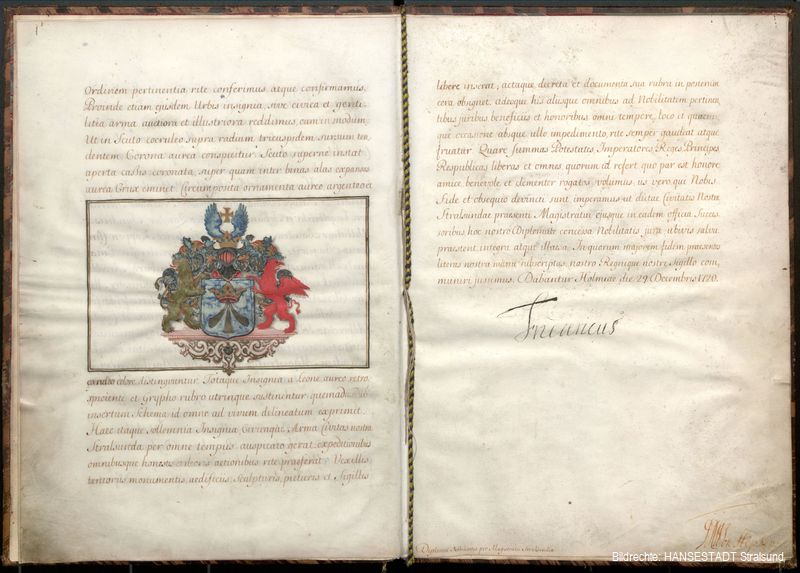 Ordinem pertinentia rite conferimus atque confirmamus.
Proinde etiam ejusdem Urbis insignia, sive civica et genti-
litia arma auctiora et illustriora reddimus, eum in modum:
Ut in Scuto coeruleo supra radium tricuspidem sursum ten
dentem Corona aurea conspiciatur. Scuto superne instat
aperta cassis coronata, super quam inter binas alas expansas
aurea Crux eminet. Circumposita ornamenta aureo argenteo et
colore distinguuntur. Totaque Insignia a Leone aureo retro
spiciente et Grypho rubro utrinque sustinentur quemadmodum
insertum Schema id omne ad vivum delineatum exprimit.
Haec itaque sollemnia Insignia Civiumque Arma Civitas nostra
Stralsunda per omne tempus auspicato gerat, expeditionibus
omnibusque honestis actionibus rite praeferat, Vexillis
tentoriis monumentis, aedificiis, sculpturis, picturis et Sigillis
libere inserat, actaque decreta et documenta sua rubra in
cera obsignet, adeoque his aliisque omnibus ad Nobilitatem pertinen
tibus juribus beneficiis et honoribus omni tempore, loco et quacun-
que occasione absque ullo impedimento, rite semper gaudeat atque
fruatur. Quare summas Potestates Imperatores, Reges, Principes
Respublicas liberas et omnes quorum id refert quo par est honore
amice, benevole et clementer rogatos volumus, iis vero qui Nobis
Fide et obsequio devincti sunt imperamus ut dictae Civitatis Nostrae
Stralsundae praesenti Magistratui ejusque in eadem officia Succes
soribus hoc nostro Diplomate concessa Nobilitatis jura ubivis salva
praestent integra atque illaesa. In quorum majorem fidem praesentes
literas nostra manu subscriptas, nostro Regnique nostri Sigillo com,
muniri jussimus. Dabantur Holmiae die 29 Decembris 1720.
Fridericus
Diploma Nobilitatis pro Magistratu Stralsundia
Bildrechte: HANSESTADT Stralsund